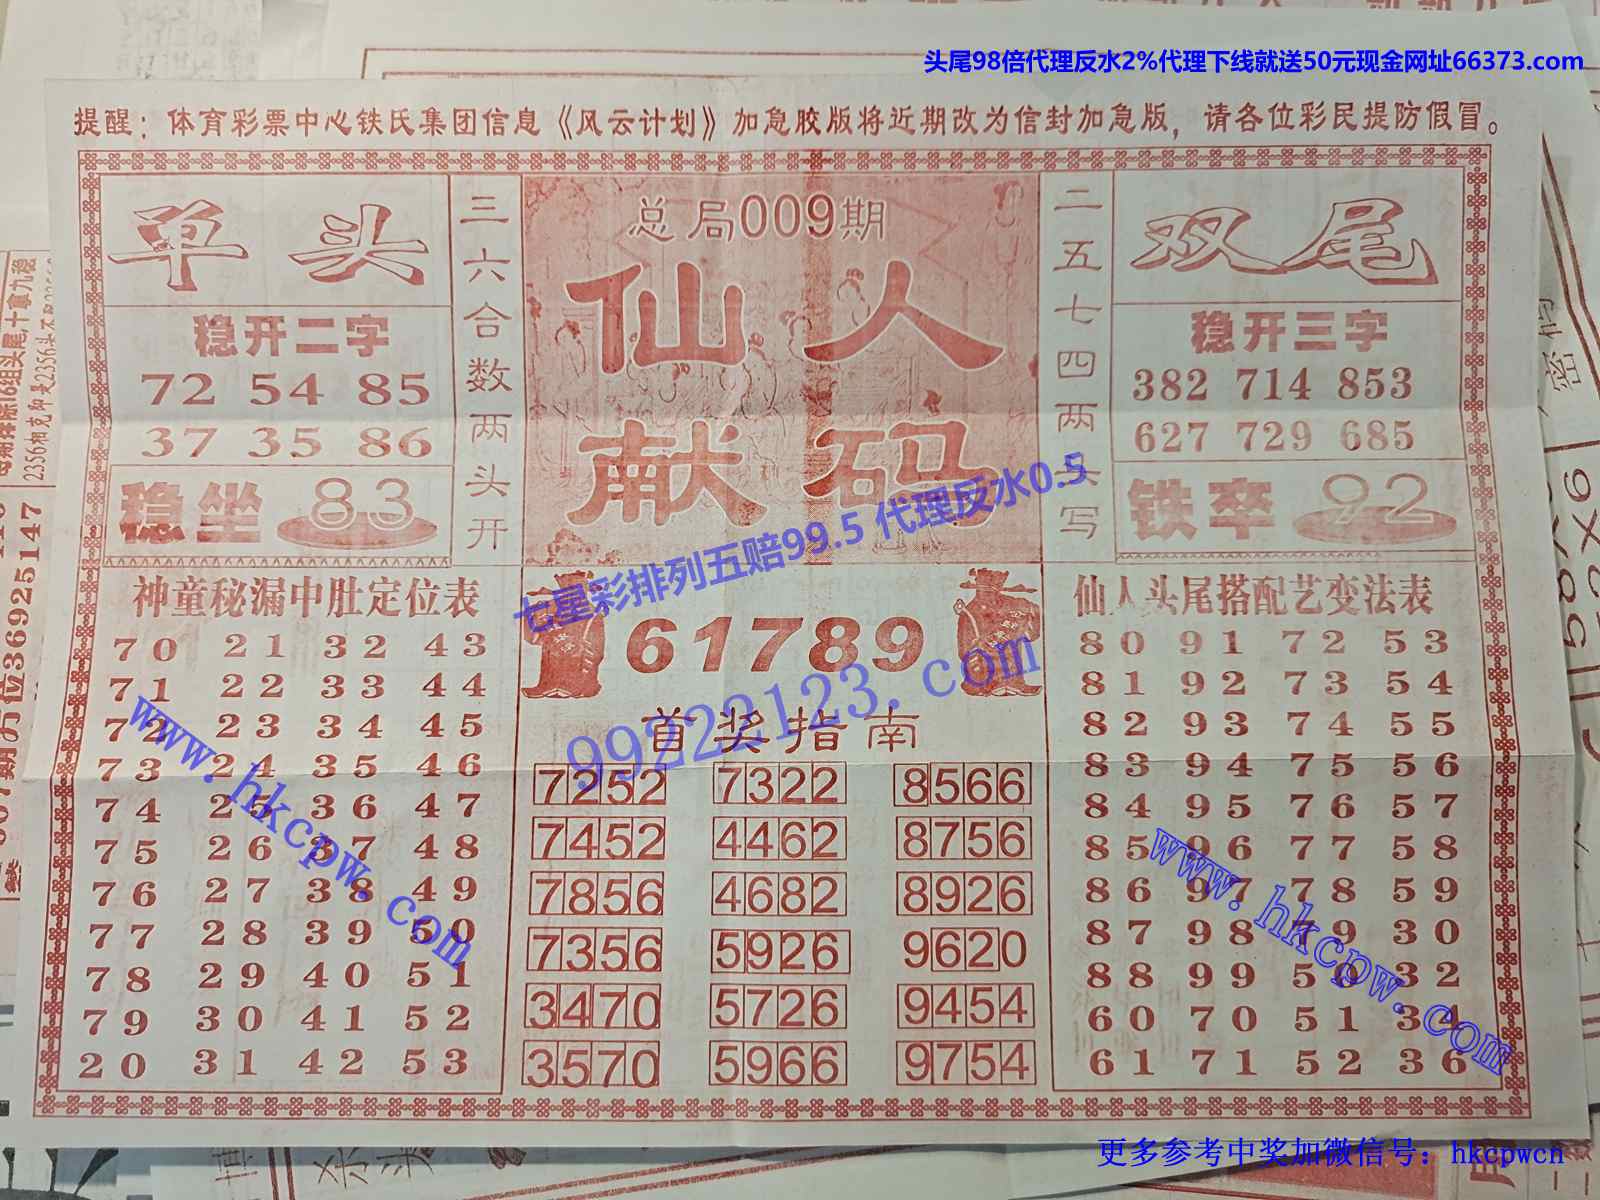 头尾98倍代理反水2%代理下线就送50元现金网址66373.com
提醒：体育彩票中心铁氏集团信息《风云计划》加急胶版将近期改为信封加急版，请各位彩民提防假冒。
单头
稳开二字
72 54 85
37 35 86
稳坐 83
三六合数两头开
总局009期
仙人
献码
二五七四两头写
双尾
稳开三字
382 714 853
627 729 685
铁卒 92
七星彩排列五赔99.5 代理反水0.5
99222123.com
神童秘漏中肚定位表
70 21 32 43
71 22 33 44
72 23 34 45
73 24 35 46
74 25 36 47
75 26 37 48
76 27 38 49
77 28 39 50
78 29 40 51
79 30 41 52
20 31 42 53
www.hkcpw.com
61789
首奖指南
7252 7322 8566
7452 4462 8756
7856 4682 8926
7356 5926 9620
3470 5726 9454
3570 5966 9754
仙人头尾搭配艺变法表
80 91 72 53
81 92 73 54
82 93 74 55
83 94 75 56
84 95 76 57
85 96 77 58
86 97 78 59
87 98 79 30
88 99 50 32
60 70 51 34
61 71 52 36
www.hkcpw.com
更多参考中奖加微信号：hkcpwcn